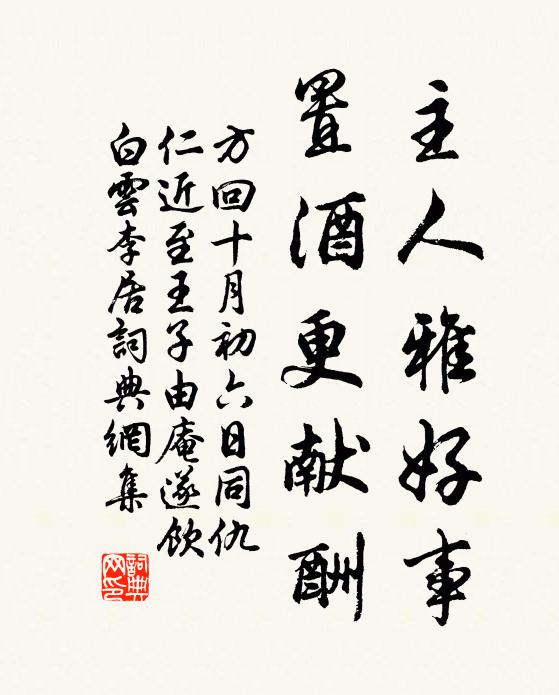 主人雅好事
置酒更献酬
方回十月初六日同仇
仁近至王子由庵遂飲
白雲李居詞典網集
詞典网印